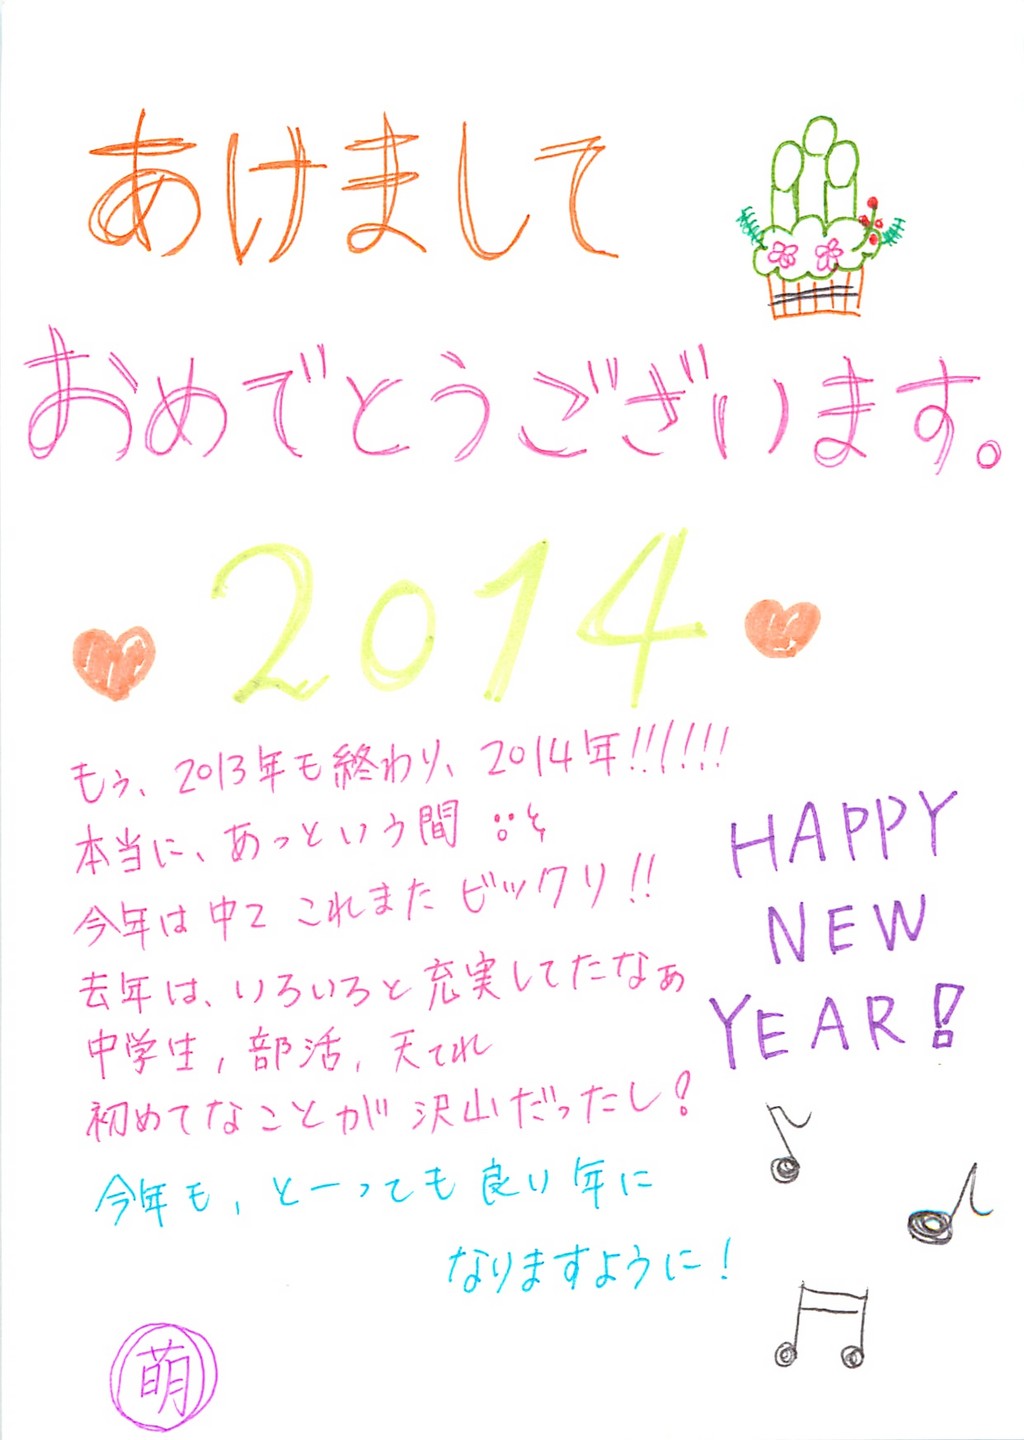 あけまして
おめでとうございます。
2014
もぅ、2013年も終わり、2014年!!!!!!
本当に、あっという間
今年は中2 これまた ビックリ!!
去年は、いろいろと充実してたなぁ
中学生,部活,天てれ
初めてなことが沢山だったし?
今年も,とーっても良い年に
なりますように!
HAPPY
NEW
YEAR!
萌